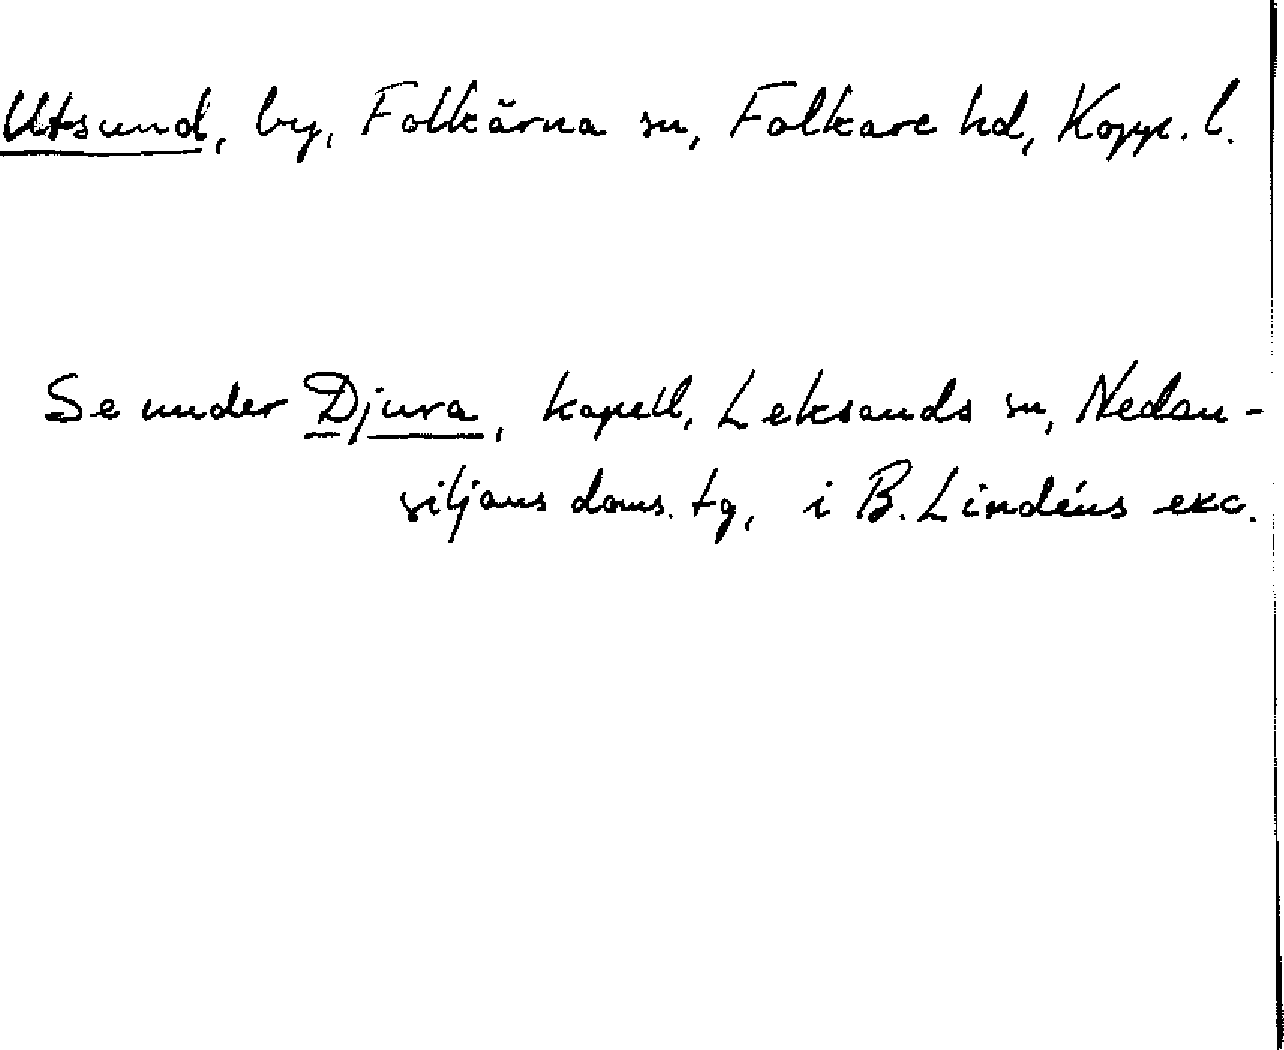 Utsund, by, Folkärna sn, Folkare hd, Kopp. l.
Se under Djura, kapell, Leksands sn, Nedan-
siljans doms. tg, i B. Lindéns exc.